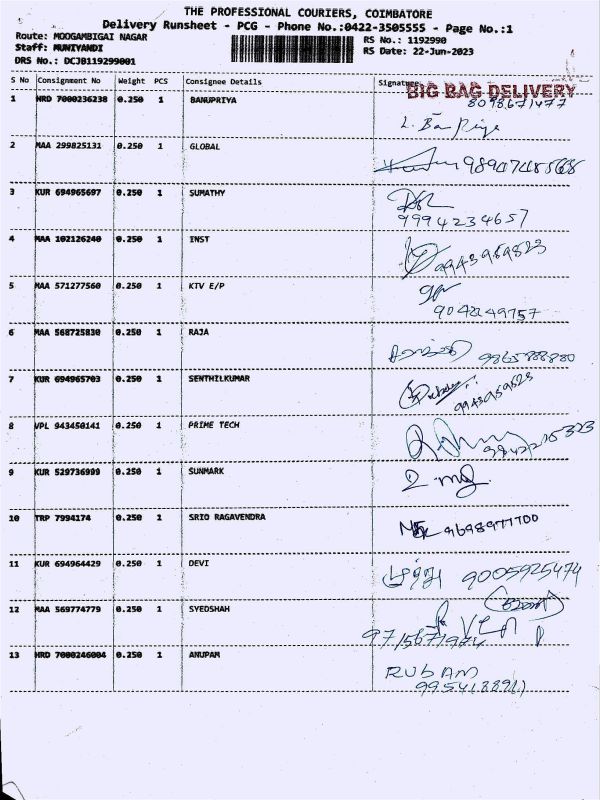 THE PROFESSIONAL COURIERS, COIMBATORE
Delivery Runsheet - PCG - Phone No.:0422-3505555 - Page No.:1
Route: MOOGAMBIGAI NAGAR RS No.: 1192990
Staff: MUNIYANDI RS Date: 22-Jun-2023
DRS No.: DCJB119299001
S No Consignment No Weight PCS Consignee Details Signature
BIG BAG DELIVERY
1 HRD 7000236238 0.250 1 BANUPRIYA 8098671477
2 MAA 299825131 0.250 1 GLOBAL
3 KUR 694965697 0.250 1 SUMATHY
9994234657
4 MAA 102126240 0.250 1 INST
5 MAA 571277560 0.250 1 KTV E/P
9042249757
6 MAA 568725830 0.250 1 RAJA
7 KUR 694965703 0.250 1 SENTHILKUMAR
8 VPL 943450141 0.250 1 PRIME TECH
9 KUR 529736999 0.250 1 SUNMARK
10 TRP 7994174 0.250 1 SRIO RAGAVENDRA
9698977700
11 KUR 694964429 0.250 1 DEVI
9005925474
12 MAA 569774779 0.250 1 SYEDSHAH
13 HRD 7000246004 0.250 1 ANUPAM
RUBAM